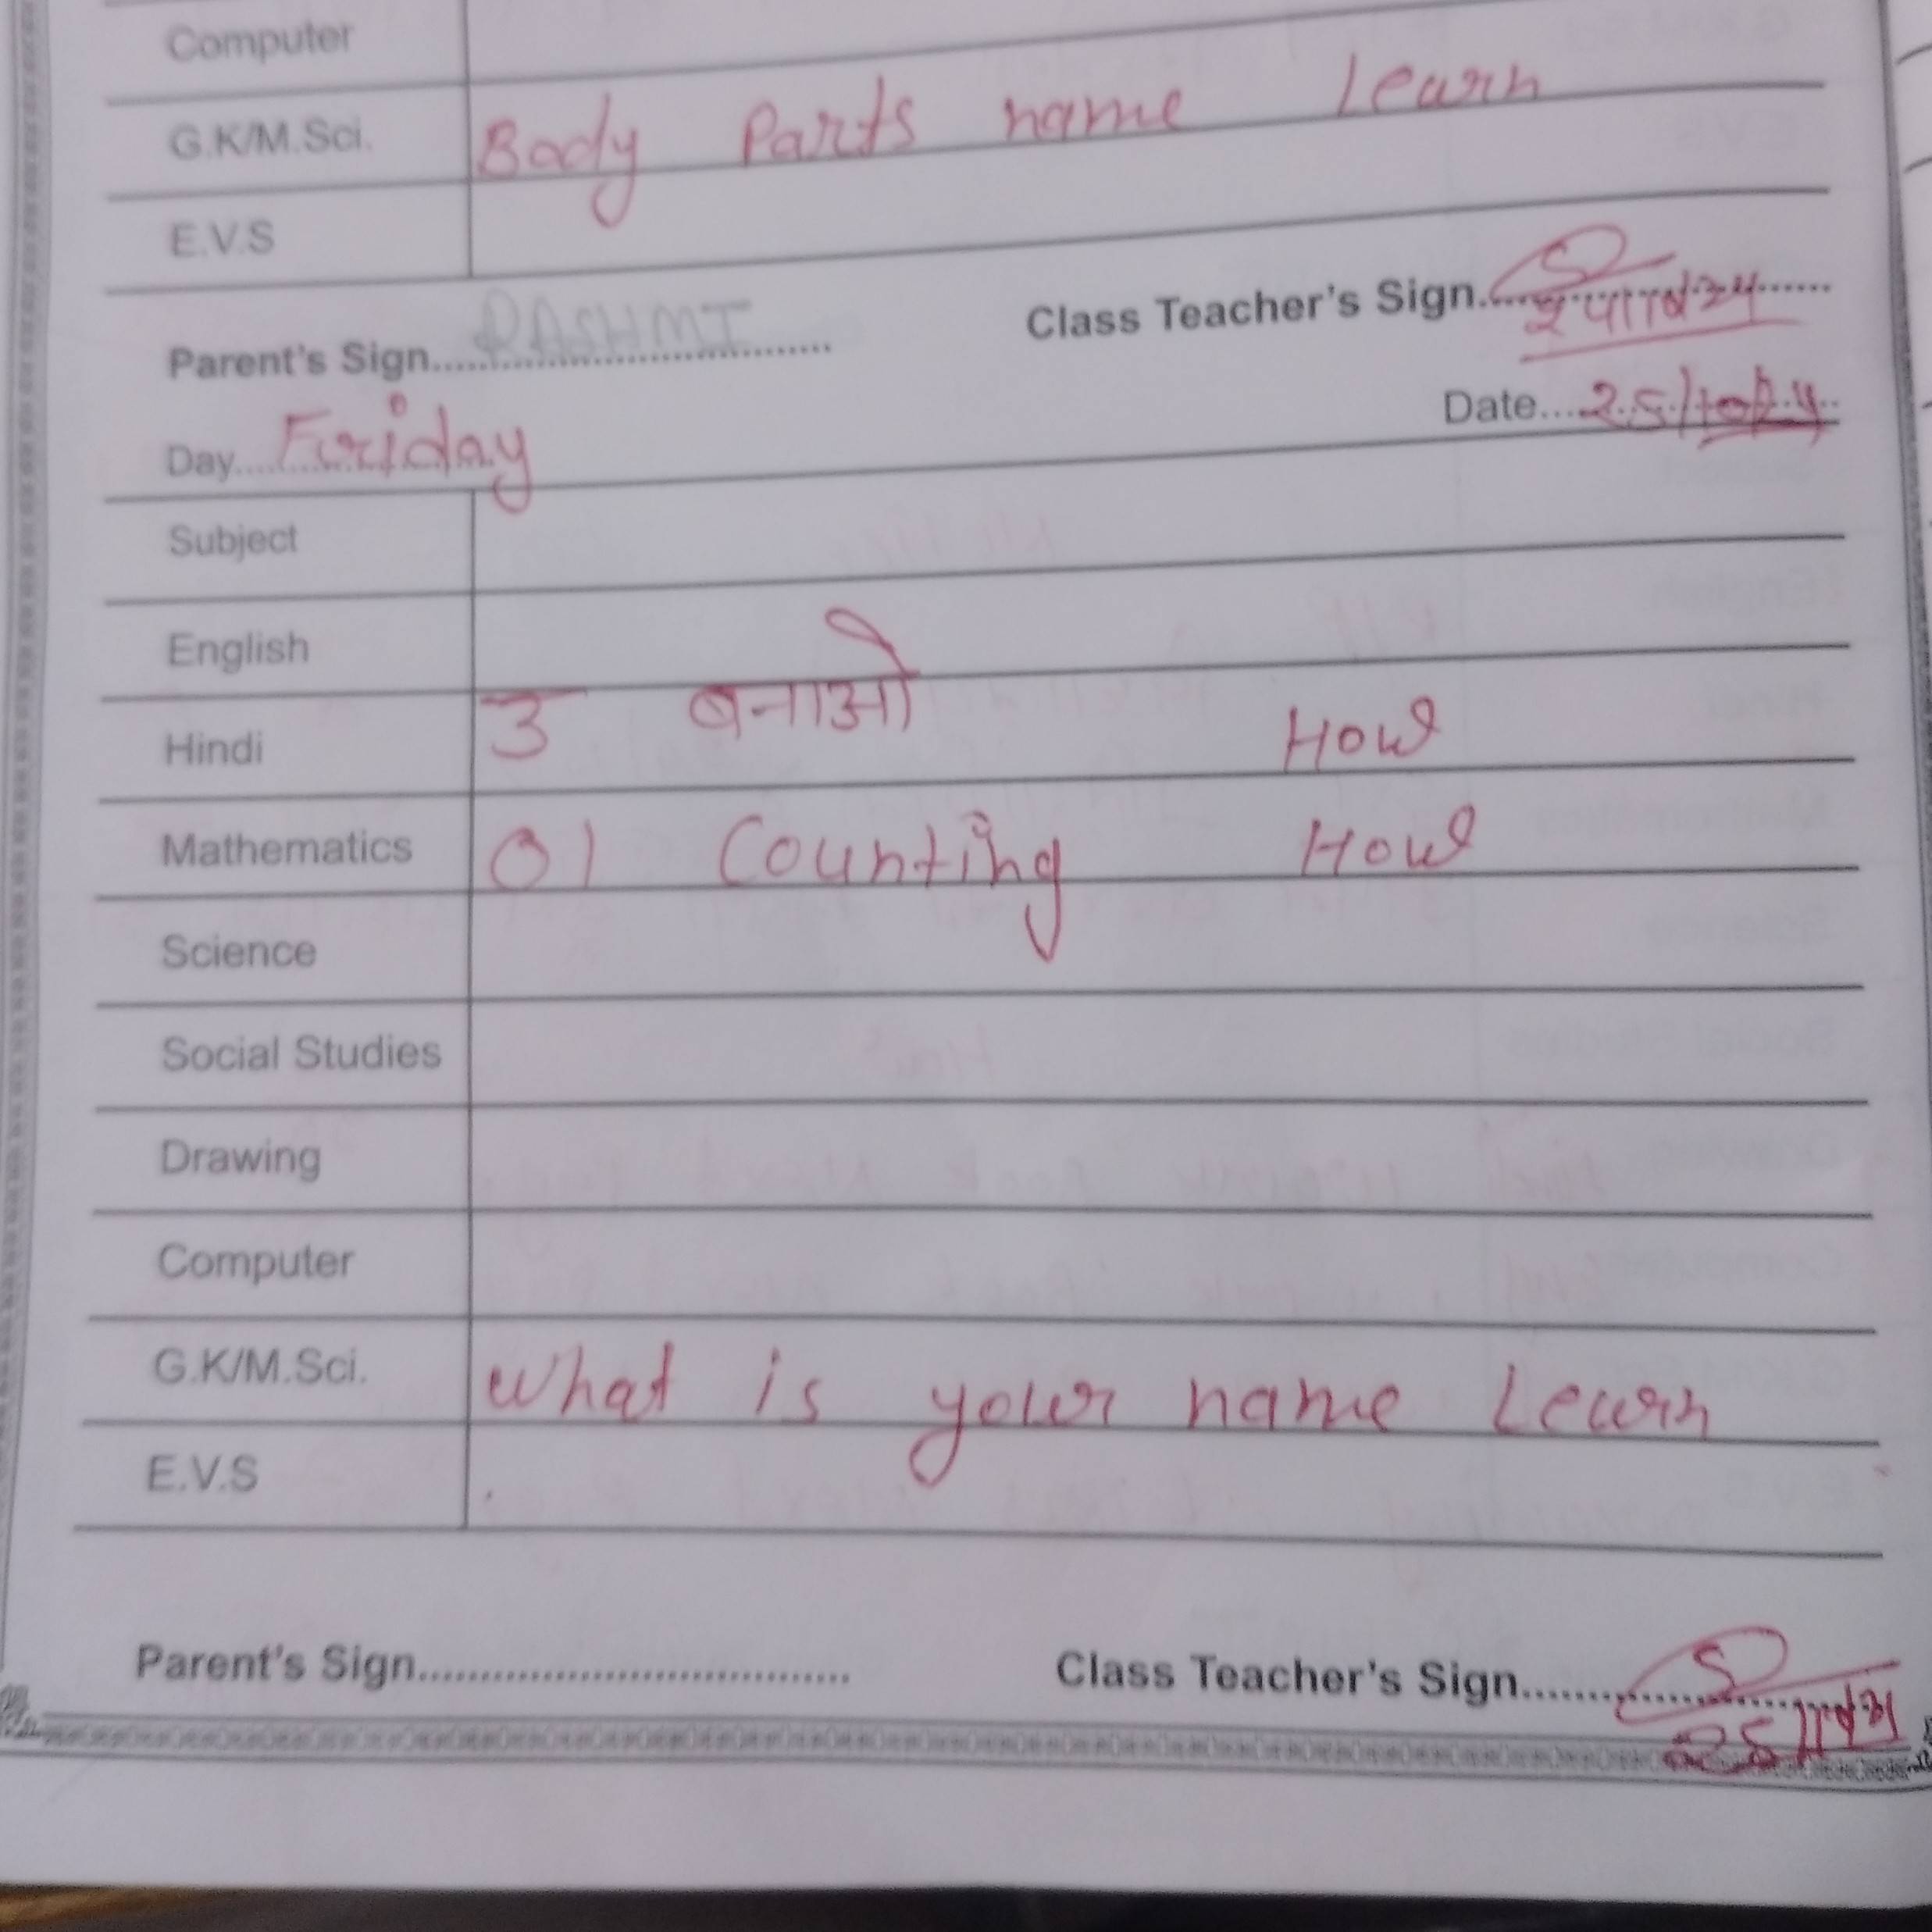 Computer
G.K/M.Sci. Body Parts name Learn
E.V.S
Parent's Sign.......RASHMI....... Class Teacher's Sign.......
Day.....Friday Date....25/10/24
Subject
English
Hindi उ बनाओ How
Mathematics 01 Counting How
Science
Social Studies
Drawing
Computer
G.K/M.Sci. What is your name Learn
E.V.S
Parent's Sign................................ Class Teacher's Sign.......